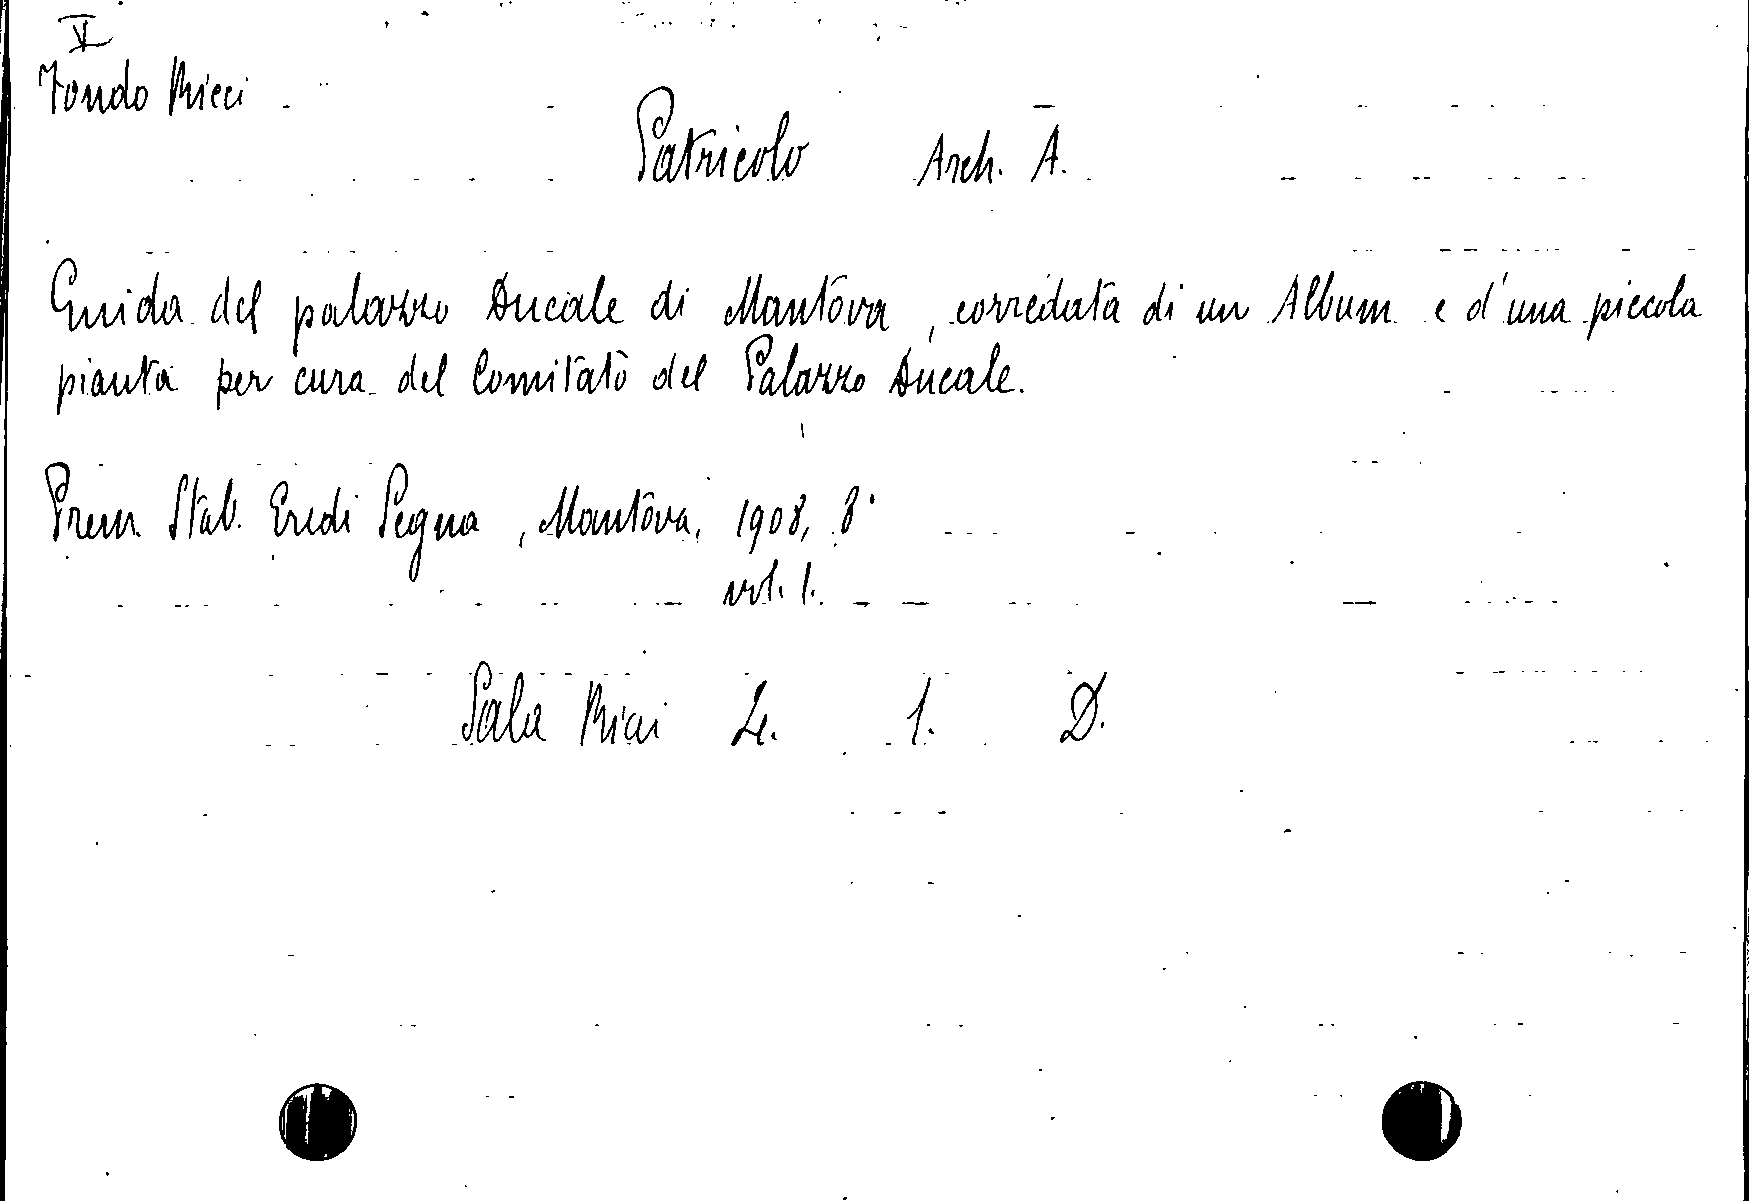 V
Fondo Ricci
Patricolo Arch. A.
Guida del palazzo Ducale di Mantova, corredata di un Album e d'una piccola
pianta per cura del Comitato del Palazzo Ducale.
Prem. Stab. Eredi Segna, Mantova, 1908, 8°
vol. 1.
Sala Ricci 1. D.